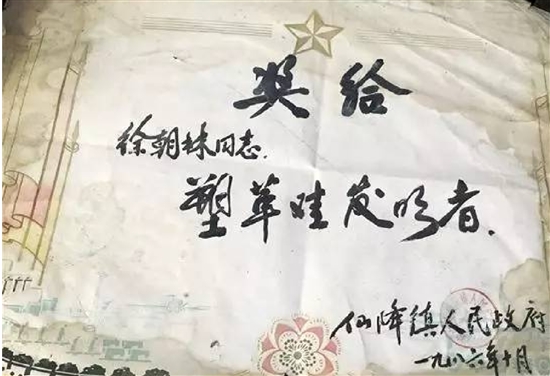 奖给
徐朝林同志.
塑革哇发明者.
仙降镇人民政府
一九八六年十月